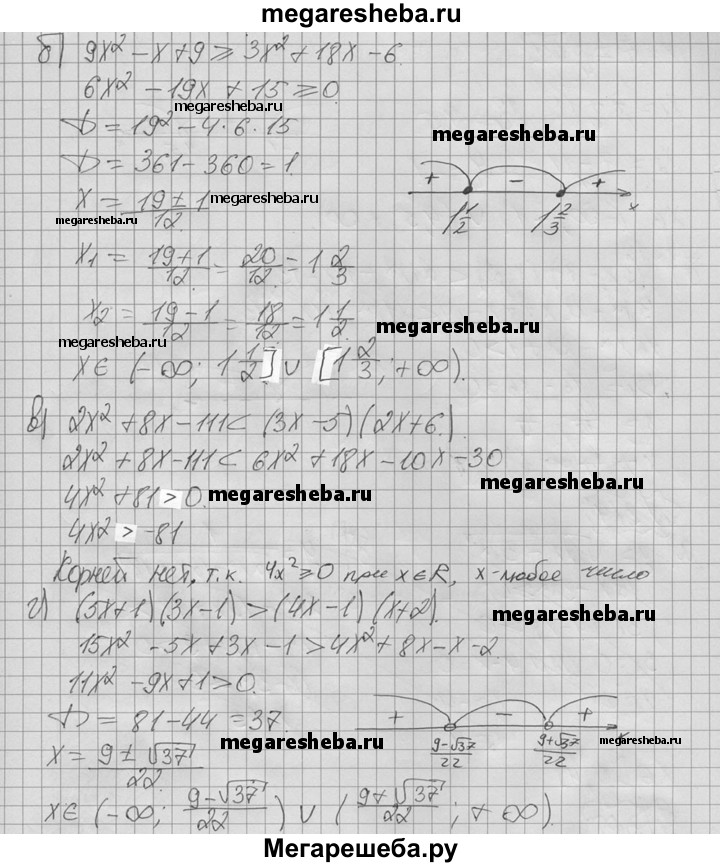 megaresheba.ru
б) 9x² - x + 9 ≥ 3x² + 18x - 6.
6x² - 19x + 15 ≥ 0.
megaresheba.ru
D = 19² - 4·6·15
megaresheba.ru
D = 361 - 360 = 1.
x = (19 ± 1)/12
megaresheba.ru
megaresheba.ru
+ - +
1 1/2 1 2/3 x
x₁ = (19+1)/12 = 20/12 = 1 2/3
x₂ = (19-1)/12 = 18/12 = 1 1/2.
megaresheba.ru
x ∈ (-∞; 1 1/2] ∪ [1 2/3; +∞).
в) 2x² + 8x - 111 < (3x - 5)(2x + 6).
2x² + 8x - 111 < 6x² + 18x - 10x - 30
megaresheba.ru
4x² + 81 > 0.
megaresheba.ru
4x² > -81
Корней нет, т.к. 4x² ≥ 0 при x ∈ R, x - любое число
г) (5x+1)(3x-1) > (4x-1)(x+2).
megaresheba.ru
15x² - 5x + 3x - 1 > 4x² + 8x - x - 2
11x² - 9x + 1 > 0.
D = 81 - 44 = 37.
+ - +
(9-√37)/22 (9+√37)/22 x
megaresheba.ru
megaresheba.ru
x = (9 ± √37)/22.
x ∈ (-∞; (9-√37)/22) ∪ ((9+√37)/22; +∞).
Мегарешеба.ру